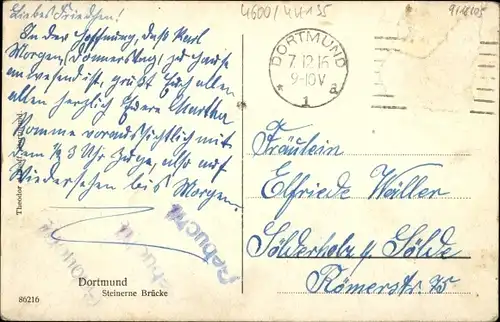 4600/44135
Liebes Friedchen!
In der Hoffnung, daß Karl
Morgen (Donnerstag) zu Hause
anwesend ist, grüßt Euch allen
allen herzlich Eure Martha
Komme voraussichtlich mit
dem ½3 Uhr Zuge, also auf
Wiedersehen bis Morgen.
DORTMUND
7.12.16
9-10V
* 1 a
Fräulein
Elfriede Wäller
Sölderholz b/ Sölde
Römerstr. 75
Gebucht
Dortmund
Steinerne Brücke
86216
Theodor